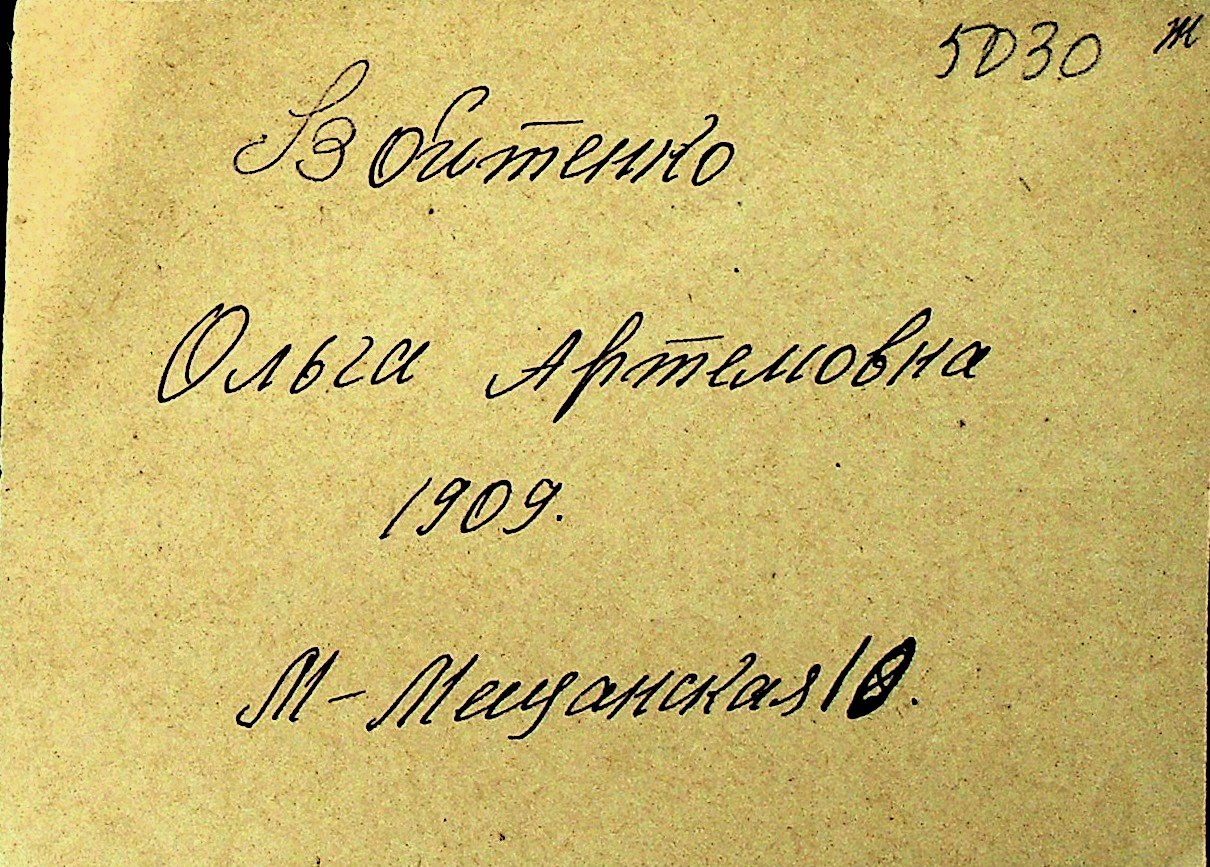 5030 ж
Войтенко
Ольга Артемовна
1909.
М-Мещанская